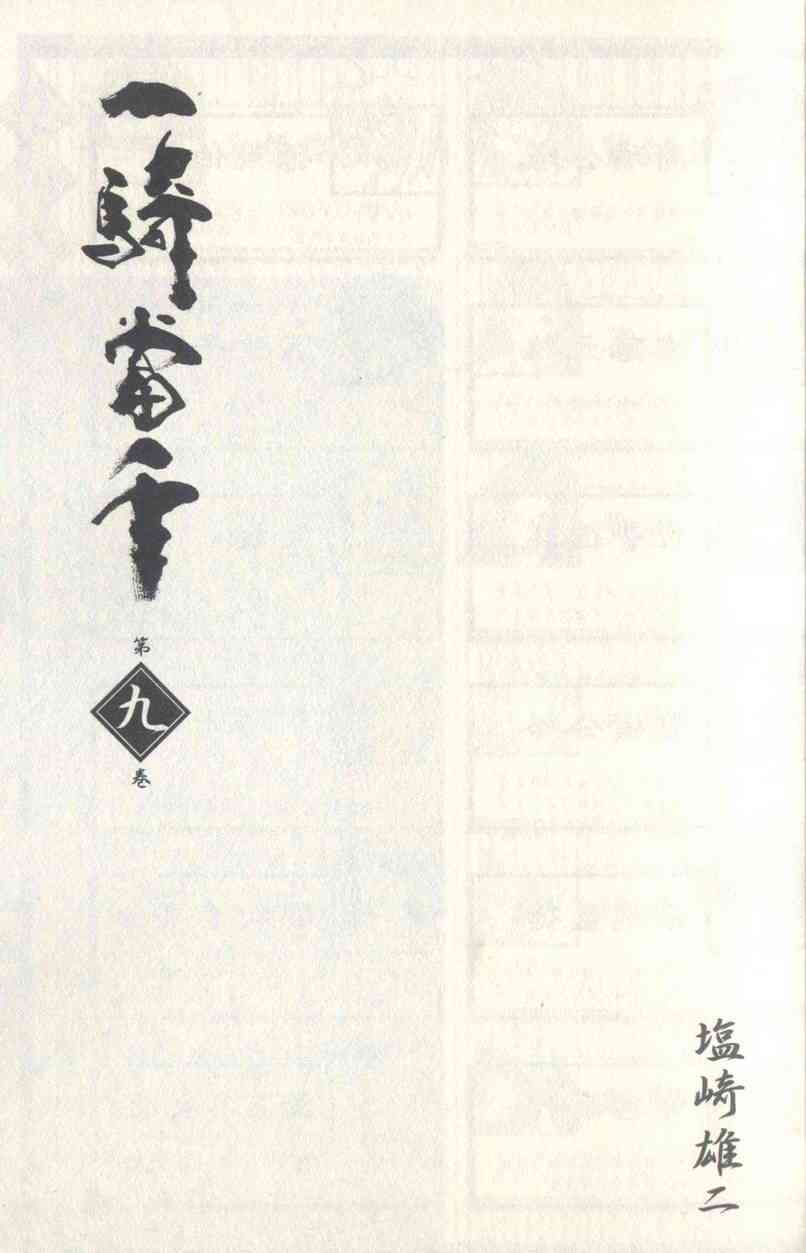 塩崎雄二
一騎當千
第九巻